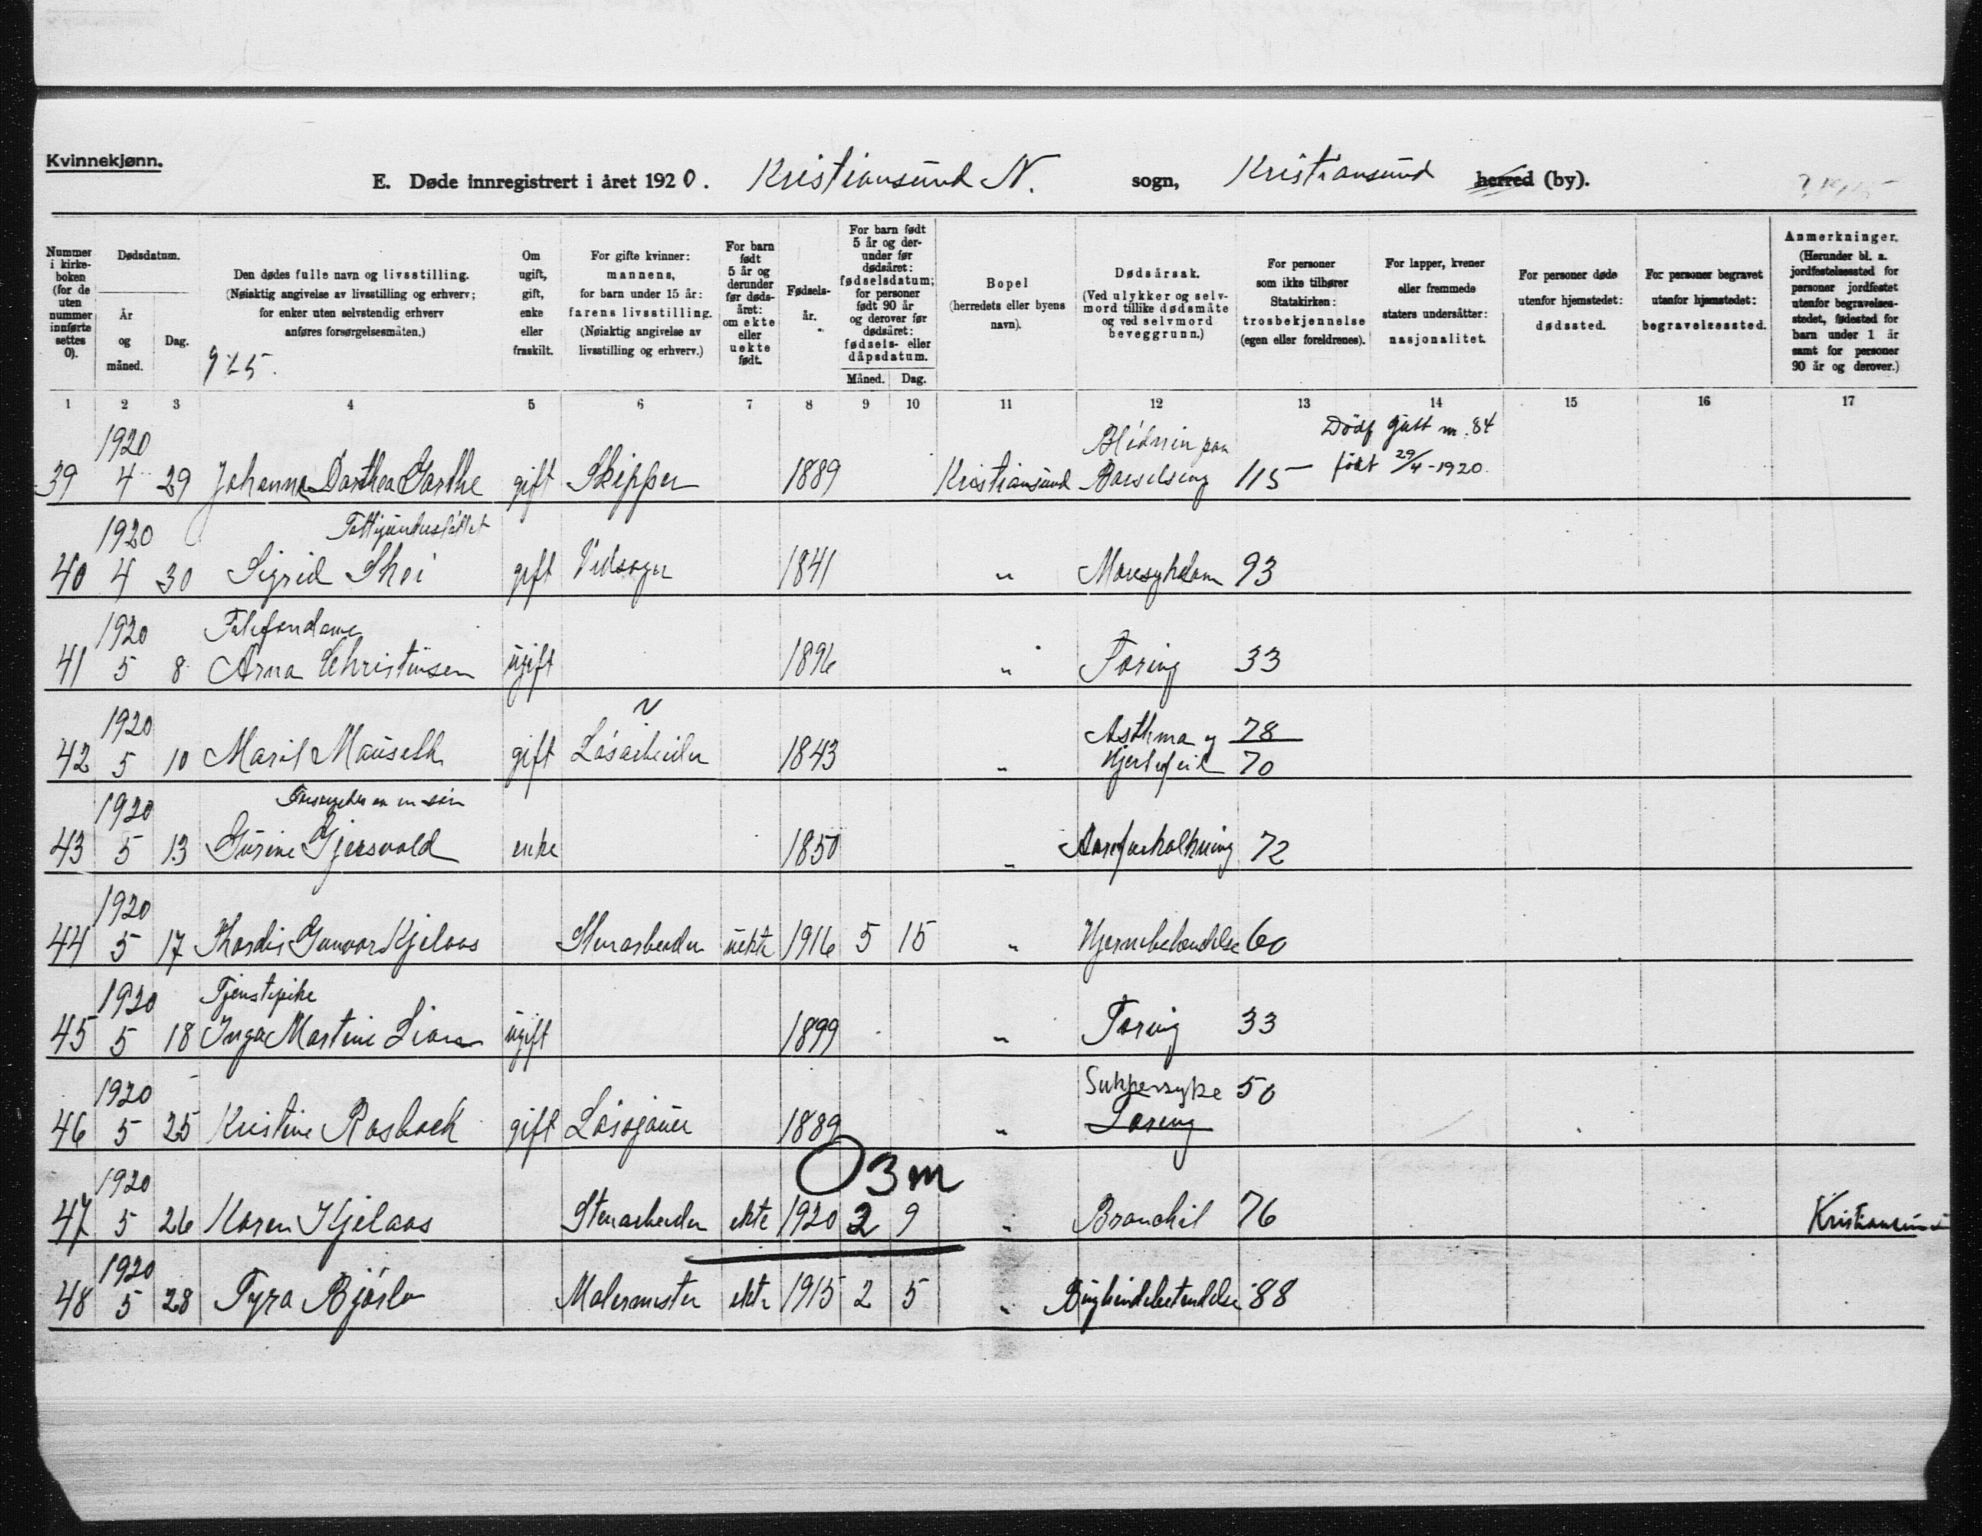 Kvinnekjønn.
E. Døde innregistrert i året 1920. Kristiansund N. sogn, Kristiansund herred (by).
Nummer i kirke-boken (for de uten nummer innførte settes 0).
Dødsdatum.
År og måned.
Dag.
Den dødes fulle navn og livsstilling.
(Nøiaktig angivelse av livsstilling og erhverv; for enker uten selvstendig erhverv anføres forsørgelsesmåten.)
925.
Om ugift, gift, enke eller fraskilt.
For gifte kvinner: mannens, for barn under 15 år: farens livsstilling.
(Nøiaktig angivelse av livsstilling og erhverv.)
For barn født 5 år og derunder før døds-året: om ekte eller uekte født.
Fødsels-år.
For barn født 5 år og der-under før dødsåret: fødselsdatum; for personer født 90 år og derover før dødsåret: fødsels- eller dåpsdatum.
Måned. Dag.
Bopel
(herredets eller byens navn).
Dødsårsak.
(Ved ulykker og selv-mord tillike dødsmåte og ved selvmord beveggrunn.)
For personer som ikke tilhører Statskirken: trosbekjennelse (egen eller foreldrenes).
For lapper, kvener eller fremmede staters undersåtter: nasjonalitet.
For personer døde utenfor hjemstedet: dødssted.
For personer begravet utenfor hjemstedet: begravelsessted.
Anmerkninger.
(Herunder bl. a. jordfestelsessted for personer jordfestet utenfor begravelses-stedet, fødested for barn under 1 år samt for personer 90 år og derover.)
1 2 3 4 5 6 7 8 9 10 11 12 13 14 15 16 17
1920 Dödf gutt nr. 84
39 4 29 Johanna Dorthea Garthe gift Skipper 1889 Kristiansund Barselseng 115 födt 29/4-1920.
1920
40 4 30 Sigrid Skei gift 1841 " 93
1920 Telefondame
41 5 8 Arna Christensen ugift 1896 " Tæring 33
1920 Asthma og 78
42 5 10 Marit gift Løsarbeider 1843 " Hjertefeil 70
1920
43 5 13 Gurine Gjersvold enke 1850 " Aareforkalkning 72
1920
44 5 17 Thordis Gunvor Kjelaas Stenarbeider uekte 1916 5 15 " Hjernebetændelse 60
1920 Tjenstepike
45 5 18 Inga Martine ugift 1899 " Tæring 33
1920 Sukkersyke 50
46 5 25 Kristine Rosbach gift 1889 " Tæring
O3m
1920
47 5 26 Karen Kjelaas Stenarbeider ekte 1920 2 9 " Bronchit 76 Kristiansund
1920
48 5 28 Tyra Malermester ekte 1915 2 5 " 88